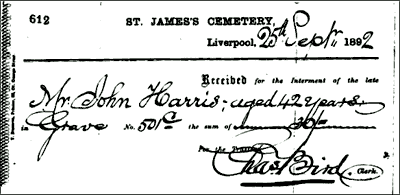 612
ST. JAMES'S CEMETERY,
Liverpool, 25th Septr 1892
Received for the Interment of the late
Mr. John Harris; aged 42 years
in Grave No. 501c the sum of
For the
Chas Bird Clerk.